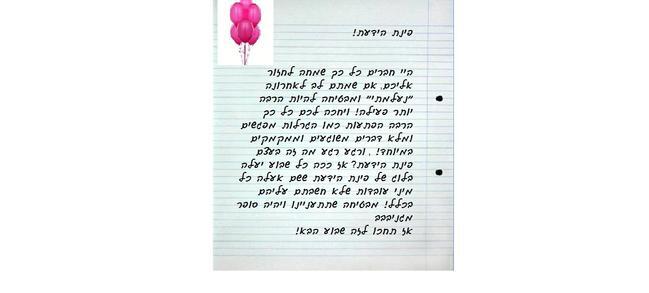 פינת הידעת!
היי חברים כל כך שמחה לחזור
אליכם. אם שמתם לב לאחרונה
"נעלמתי" ומבטיחה להיות הרבה
יותר פעילה! ויחכה לכם כל כך
הרבה הפתעות כמו הגרלות מפגשים
ומלא דברים משוגעים וממקמקים
במיוחד! , ורגע רגע מה זה בעצם
פינת הידעת? אז ככה כל שבוע יעלה
בלוג של פינת הידעת ששם אעלה כל
מיני עובדות שלא חשבתם עליהם
בכלל! מבטיחה שתתעניינו ויהיה סופר
מגניבבב
אז תחכו לזה שבוע הבא!